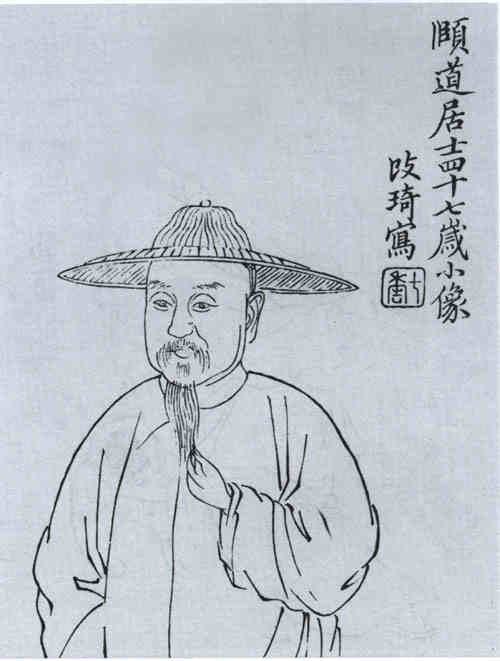 頤道居士四十七歲小像
改琦寫